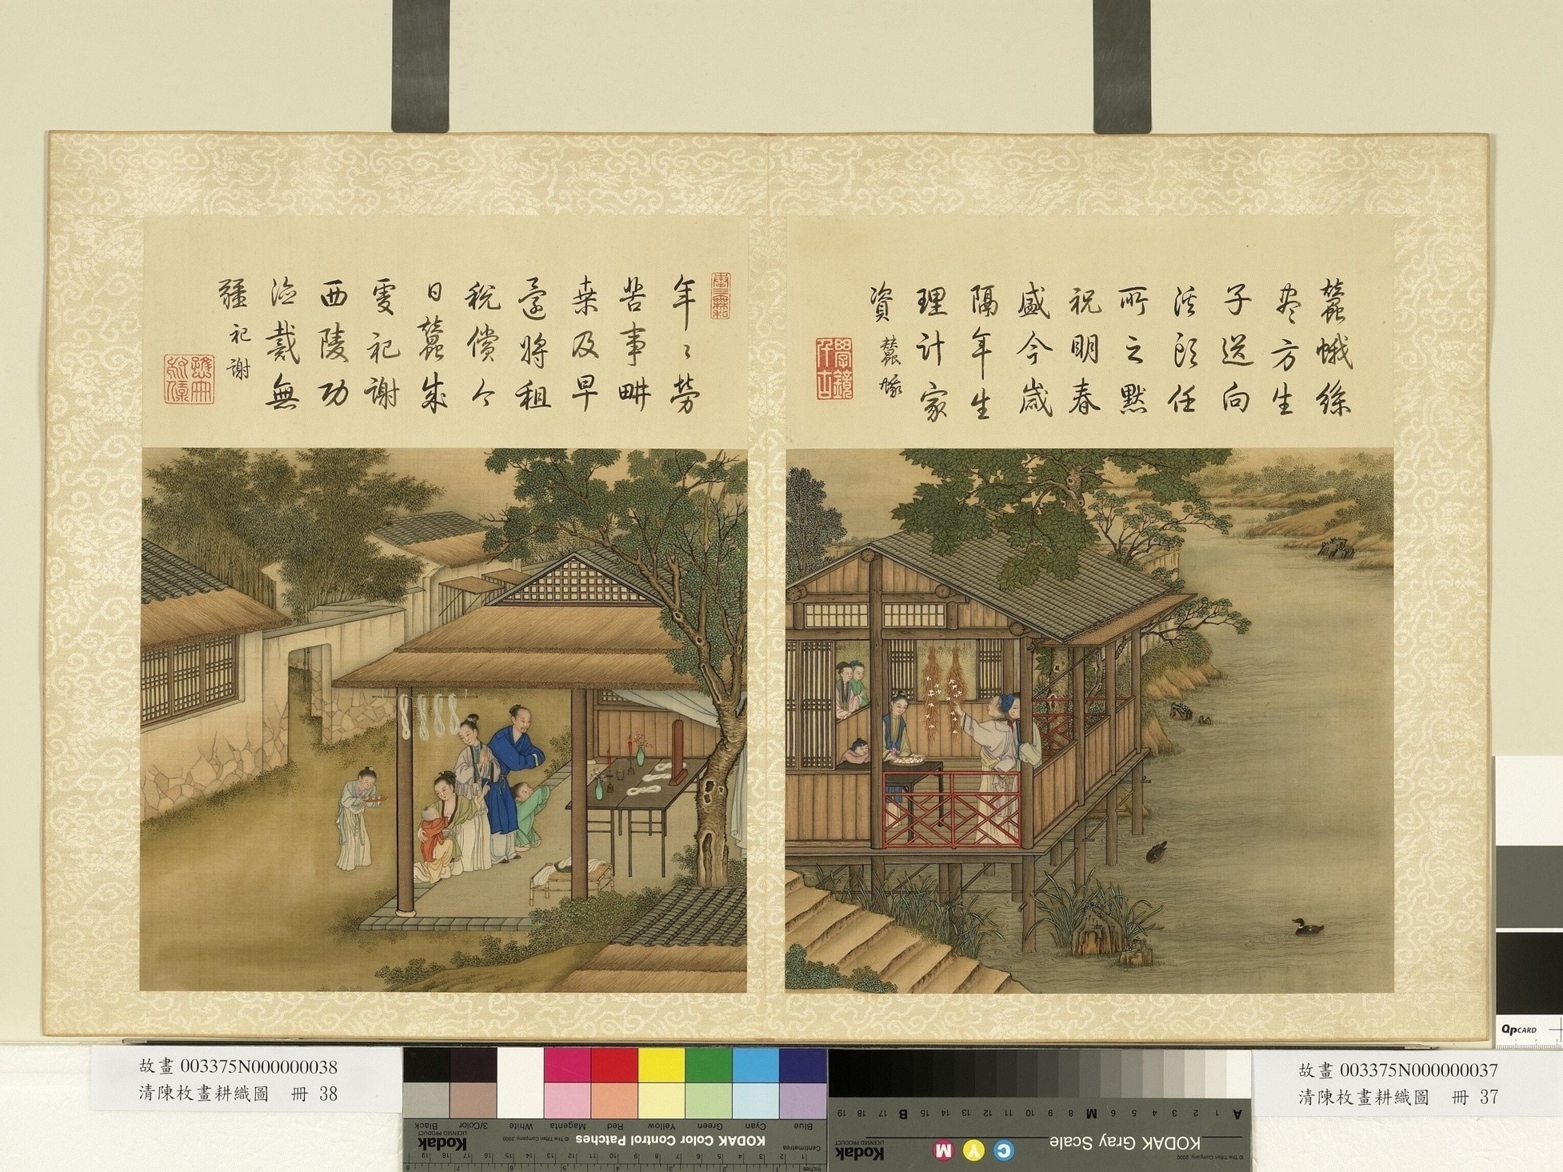 蠶蛾絲
盡方生
子送向
溪頭任
所之默
祝明春
盛今歲
隔年生
理計家
資 蠶蛾
學鏡千古
年〻勞
苦事畊
桒及早
還將租
稅償今
日蠶成
虔祀謝
西陵功
德戴無
疆 祀謝
故畫 003375N000000038
清陳枚畫耕織圖 冊 38
故畫 003375N000000037
清陳枚畫耕織圖 冊 37
QPCARD
KODAK Color Control Patches
Kodak
LICENSED PRODUCT
© The Tiffen Company, 2000
Centimetres
Inches
Blue Cyan Green Yellow Red Magenta White 3/Color Black
KODAK Gray Scale
C Y M
Kodak
LICENSED PRODUCT
© The Tiffen Company, 2000
A 1 2 3 4 5 6 M 8 9 10 11 12 13 14 15 B 17 18 19